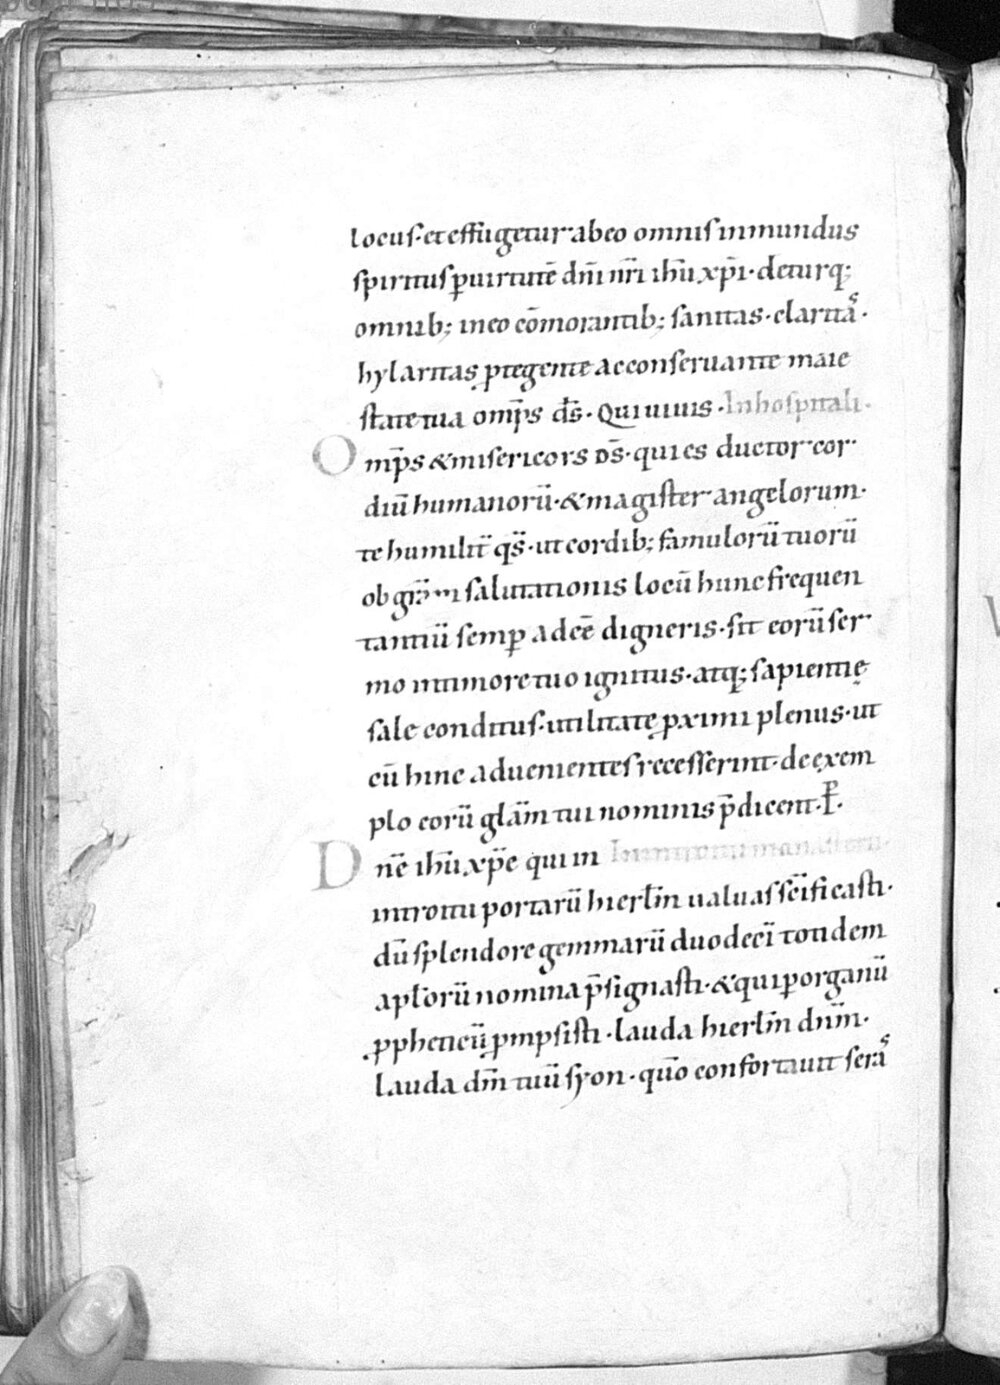 locus· et effugetur ab eo omnis inmundus
spiritus p̄ uirtutē dn̄i nr̄i ihū xp̄i· deturq;
omnib; in eo cōmorantib; sanitas· claritas·
hylaritas ꝓtegente ac conseruante maie
state tua omp̄s ds̄· Qui uiuis· In hospitali·
Omp̄s & misericors ds̄· qui es ductor cor
diū humanorū· & magister angelorum·
te humilit̄ qs̄· ut cordib; famulorū tuorū
ob salutationis locū hunc frequen
tantiū semp̄ adeē digneris· sit eorū ser
mo in timore tuo ignitus· atq; sapientię
sale conditus· utilitatę ꝓximi plenus· ut
cū hinc aduenientes recesserint· de exem
plo eorū glām tui nominis p̄dicent· P·
Dnē ihū xp̄e qui in
introitu portarū hierl̄m ualuas sc̄ificasti·
dū splendore gemmarū duodecī totidem
apl̄orū nomina p̄signasti· & qui p̄ organū
ꝓpheticū ꝓmpsisti· lauda hierl̄m dn̄m·
lauda dm̄ tuū syon· qūo confortauit seras